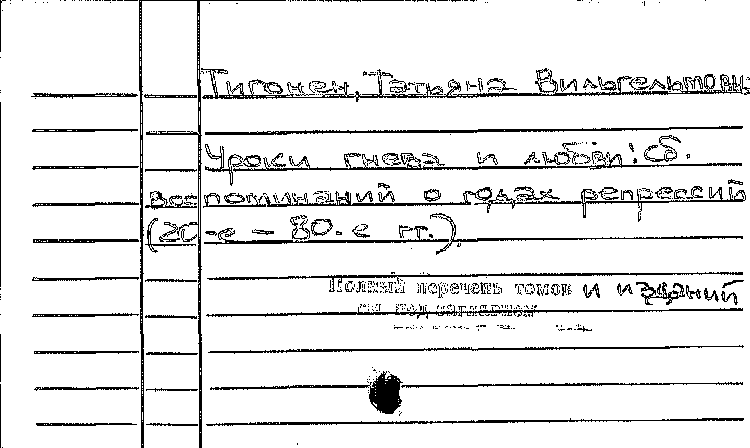 Тигонен, Татьяна Вильгельмовн
Уроки гнева и любви: Сб.
воспоминаний о годах репрессий
(20-е – 80-е гг.).
Полный перечень томов и изданий
см. под заглавием